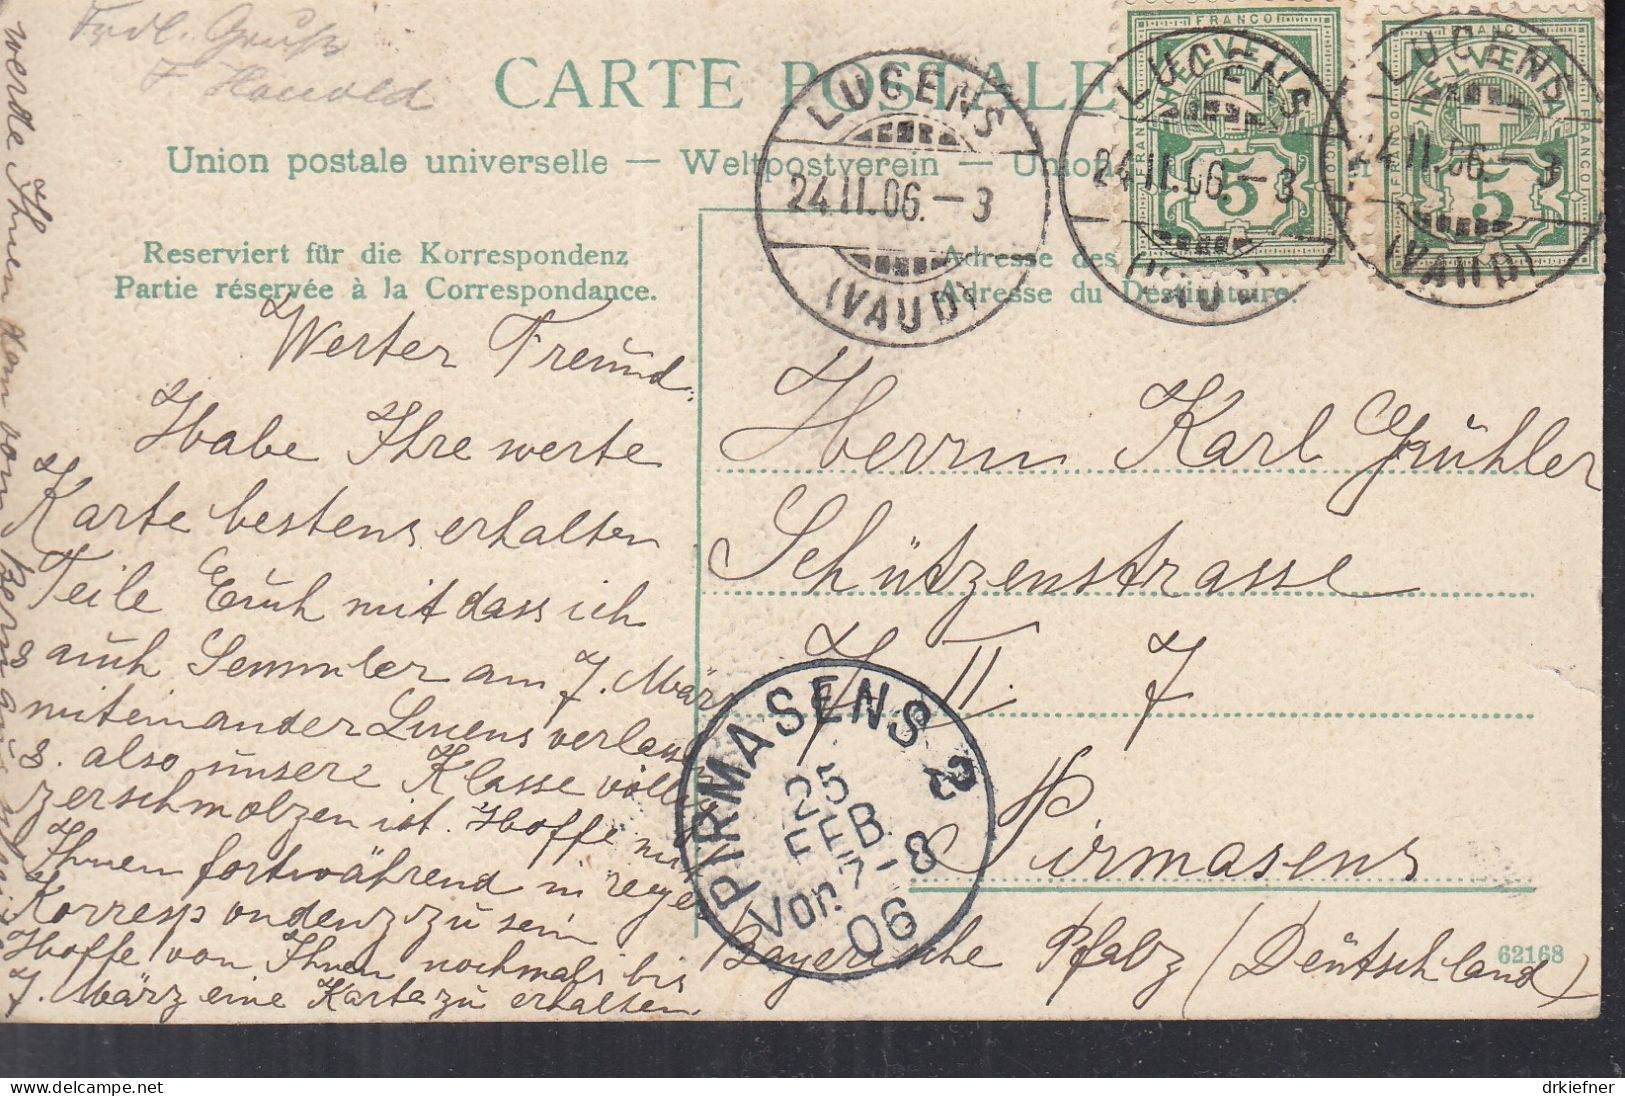 Frdl. Gruß
CARTE POSTALE
Union postale universelle — Weltpostverein — Union
Reserviert für die Korrespondenz
Partie réservée à la Correspondance.
Adresse des
Adresse du Destinataire.
FRANCO
HELVETIA
5
FRANCO
HELVETIA
5
LUCENS
24.II.06.–3
(VAUD)
LUCENS
24.II.06.–3
(VAUD)
LUCENS
24.II.06.–3
(VAUD)
Werter Freund.
Habe Ihre werte
Karte bestens erhalten
Teile Euch mit dass ich
auch Semmler am 7. März
miteinander Lucens verlass
s. also unsere Klasse völlig
zerschmolzen ist. Hoffe mit
Ihnen fortwährend in reger
Korrespondenz zu sein
Hoffe von Ihnen nochmals bis
7. März eine Karte zu erhalten.
werde Ihnen dann von Bern aus
Herrn Karl Grühler
Schützenstrasse
Z II. 7
Pirmasens
Bayerische Pfalz (Deutschland)
PIRMASENS 2
25
FEB.
Vor. 7-8
06
62168
drkiefner